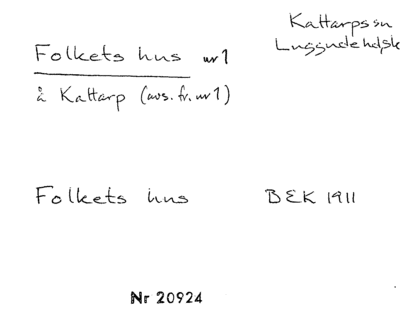 Kattarps sn
Luggude hdsk
Folkets hus nr 1
å Kattarp (avs. fr. nr 1)
Folkets hus BEK 1911
Nr 20924